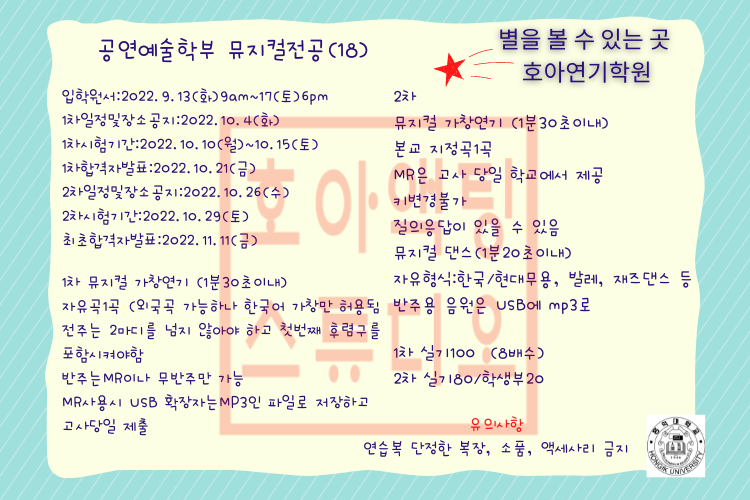 공연예술학부 뮤지컬전공(18)
별을 볼 수 있는 곳
호아연기학원
입학원서:2022. 9. 13(화)9am~17(토)6pm
1차일정및장소공지:2022. 10. 4(화)
1차시험기간:2022. 10. 10(월)~10. 15(토)
1차합격자발표:2022. 10. 21(금)
2차일정및장소공지:2022. 10. 26(수)
2차시험기간:2022. 10. 29(토)
최초합격자발표:2022. 11. 11(금)
1차 뮤지컬 가창연기 (1분30초이내)
자유곡1곡 (외국곡 가능하나 한국어 가창만 허용됨
전주는 2마디를 넘지 않아야 하고 첫번째 후렴구를
포함시켜야함
반주는MR이나 무반주만 가능
MR사용시 USB 확장자는MP3인 파일로 저장하고
고사당일 제출
2차
뮤지컬 가창연기 (1분30초이내)
본교 지정곡1곡
MR은 고사 당일 학교에서 제공
키변경불가
질의응답이 있을 수 있음
뮤지컬 댄스(1분20초이내)
자유형식:한국/현대무용, 발레, 재즈댄스 등
반주용 음원은 USB에 mp3로
1차 실기100 (8배수)
2차 실기80/학생부20
유의사항
연습복 단정한 복장, 소품, 액세사리 금지
호아액팅
스튜디오
홍익대학교
1946
HONGIK UNIVERSITY